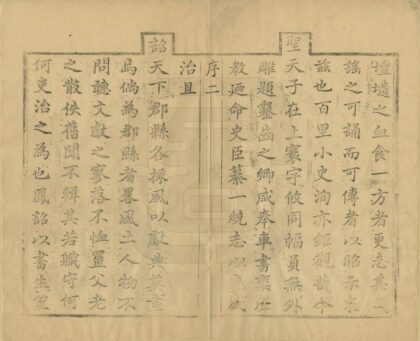 壇壝之血食一方者更志其
謠之可誦而可傳者以昭示來
茲也百里小吏洵亦鉅觀哉今
聖天子在上寰宇攸同幅員無外
雕題鑿齒之鄉咸奉車書
教廼命史臣纂一統志以
序二
治且
詔天下郡縣各採風以獻典莫重
焉倘為郡縣者畧風土人物不
問聽文獻之寥落不恤置父老
之散佚舊聞不輯其若職守何
何吏治之為也鳳詔以書生